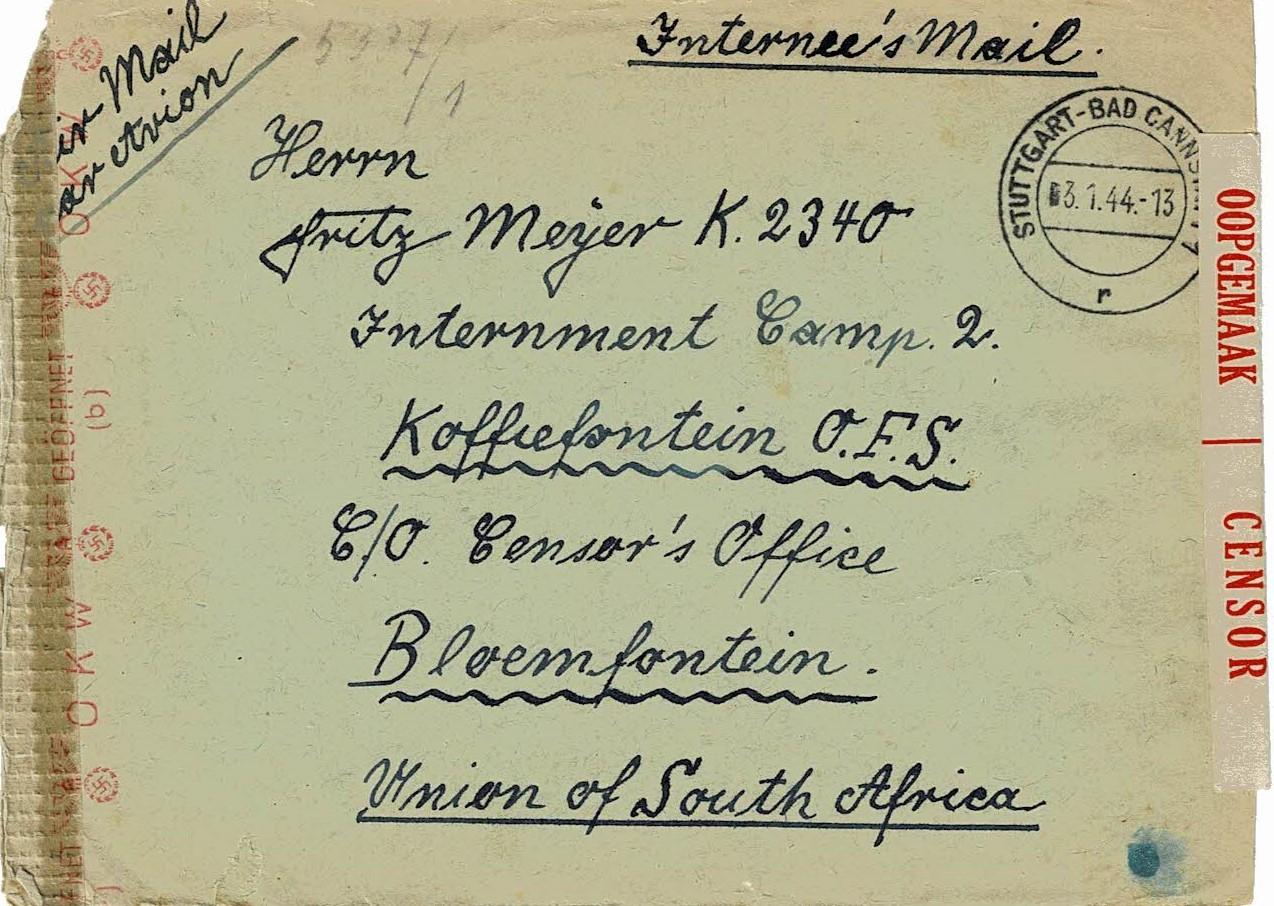 Internee's Mail.
Air Mail
Par Avion
5377/1
STUTTGART-BAD CANNSTATT
3.1.44.-13
r
Herrn
Fritz Meyer K. 2340
Internment Camp. 2.
Koffiefontein O.F.S.
C/O. Censor's Office
Bloemfontein.
Union of South Africa
OOPGEMAAK | CENSOR
OKW
GEÖFFNET
(b)
OKW